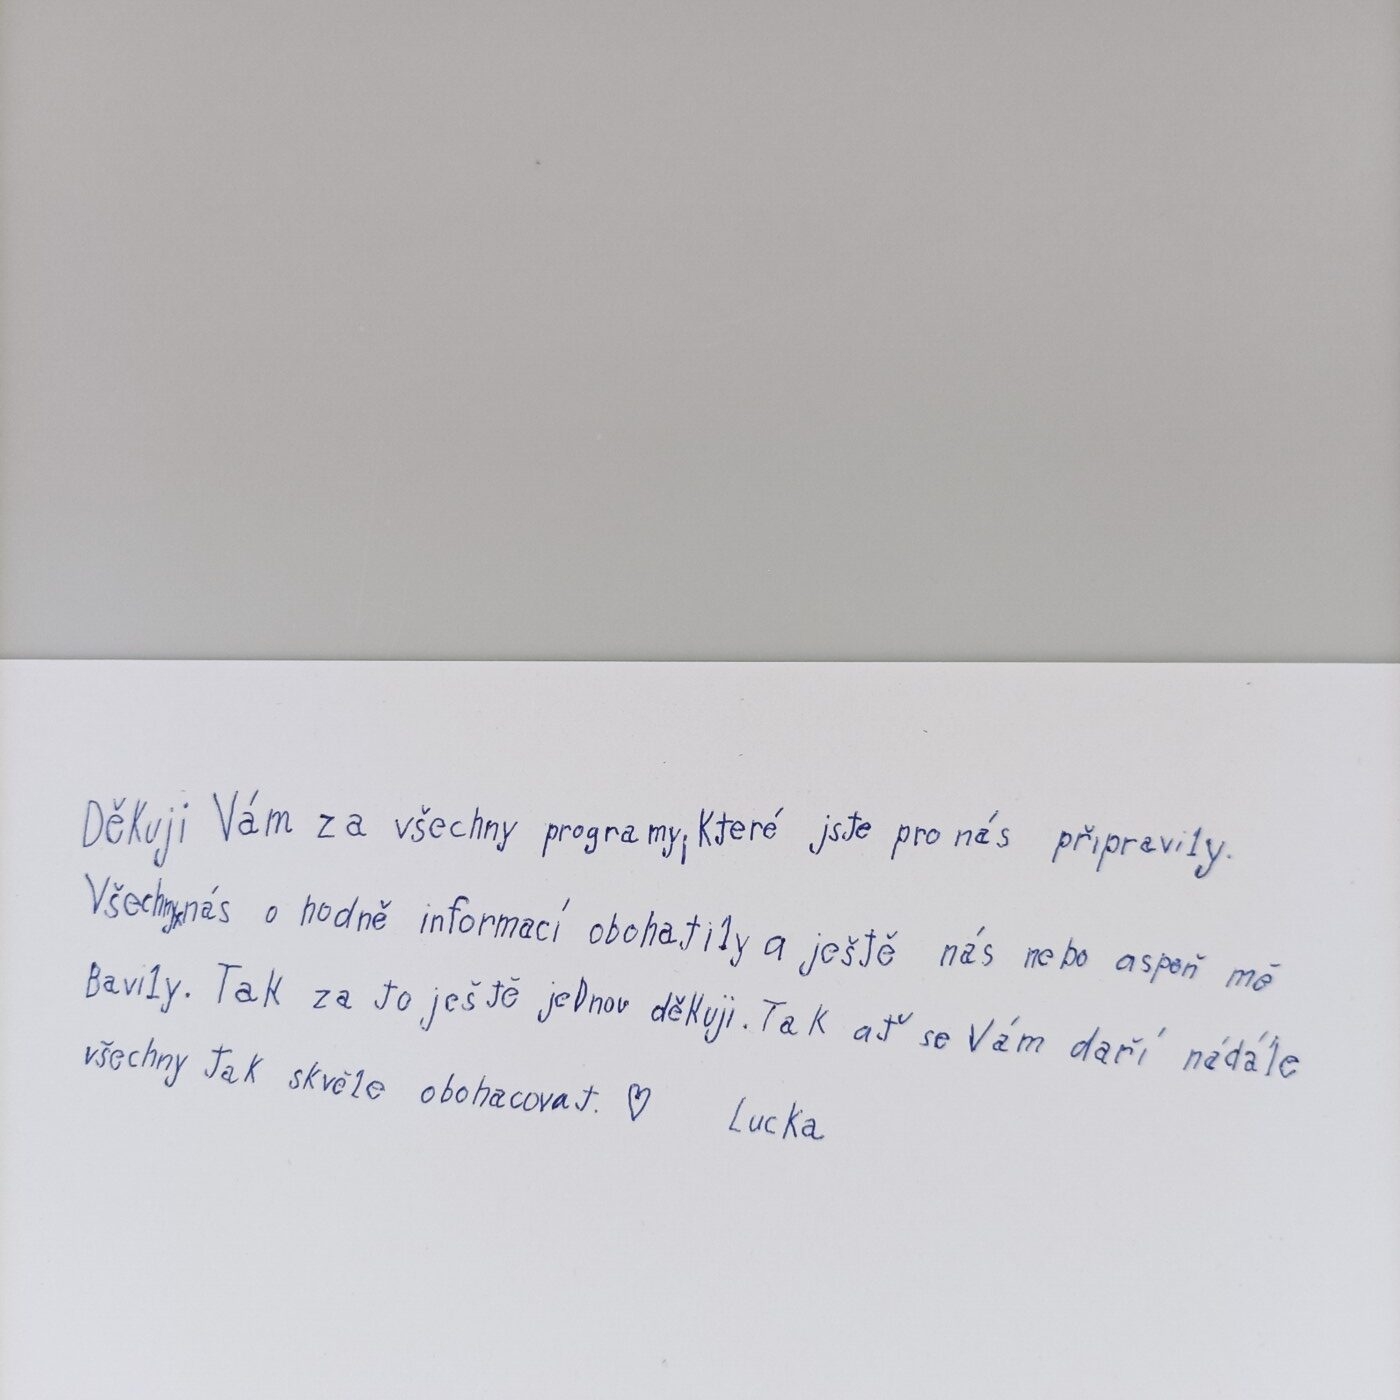 Děkuji Vám za všechny programy, které jste pro nás připravily.
Všechny nás o hodně informací obohatily a ještě nás nebo aspoň mě
Bavily. Tak za to ještě jednou děkuji. Tak ať se Vám daří nádále
všechny tak skvěle obohacovat. ♡ Lucka